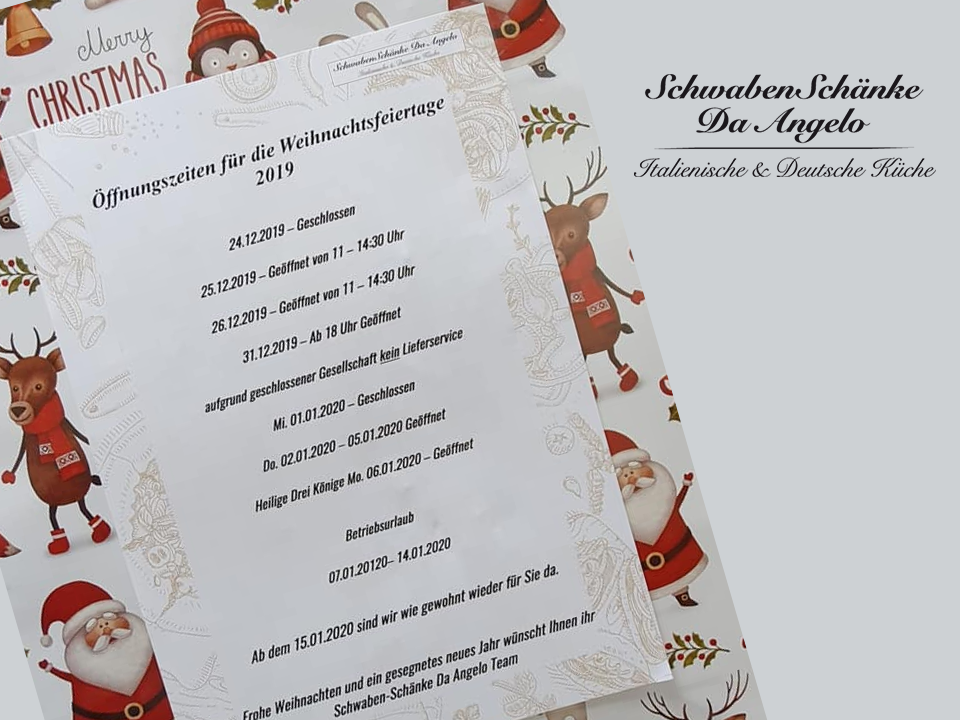 Merry
CHRISTMAS
SchwabenSchänke Da Angelo
Italienische & Deutsche Küche
Öffnungszeiten für die Weihnachtsfeiertage
2019
24.12.2019 – Geschlossen
25.12.2019 – Geöffnet von 11 – 14:30 Uhr
26.12.2019 – Geöffnet von 11 – 14:30 Uhr
31.12.2019 – Ab 18 Uhr Geöffnet
aufgrund geschlossener Gesellschaft kein Lieferservice
Mi. 01.01.2020 – Geschlossen
Do. 02.01.2020 – 05.01.2020 Geöffnet
Heilige Drei Könige Mo. 06.01.2020 – Geöffnet
Betriebsurlaub
07.01.20120– 14.01.2020
Ab dem 15.01.2020 sind wir wie gewohnt wieder für Sie da.
Frohe Weihnachten und ein gesegnetes neues Jahr wünscht Ihnen ihr
Schwaben-Schänke Da Angelo Team
SchwabenSchänke
Da Angelo
Italienische & Deutsche Küche